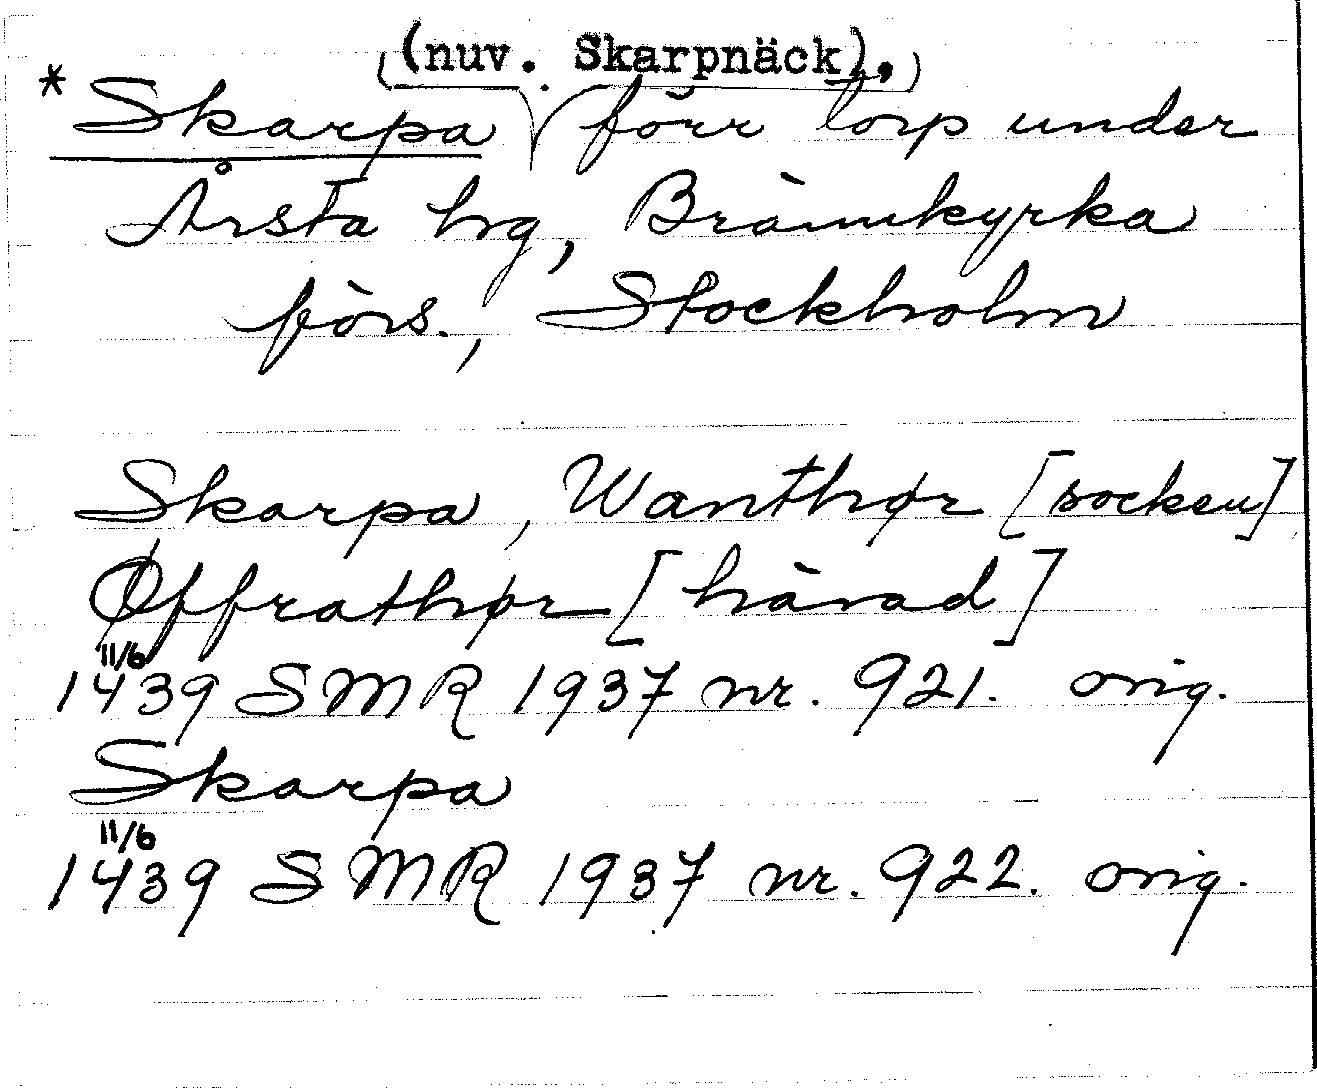 (nuv. Skarpnäck),
* Skarpa förr torp under
Årsta hrg, Brännkyrka
förs., Stockholm
Skarpa, Wanthør [socken]
Øffrathør [härad]
11/6
1439 SMR 1937 nr. 921. orig.
Skarpa
11/6
1439 SMR 1937 nr. 922. orig.